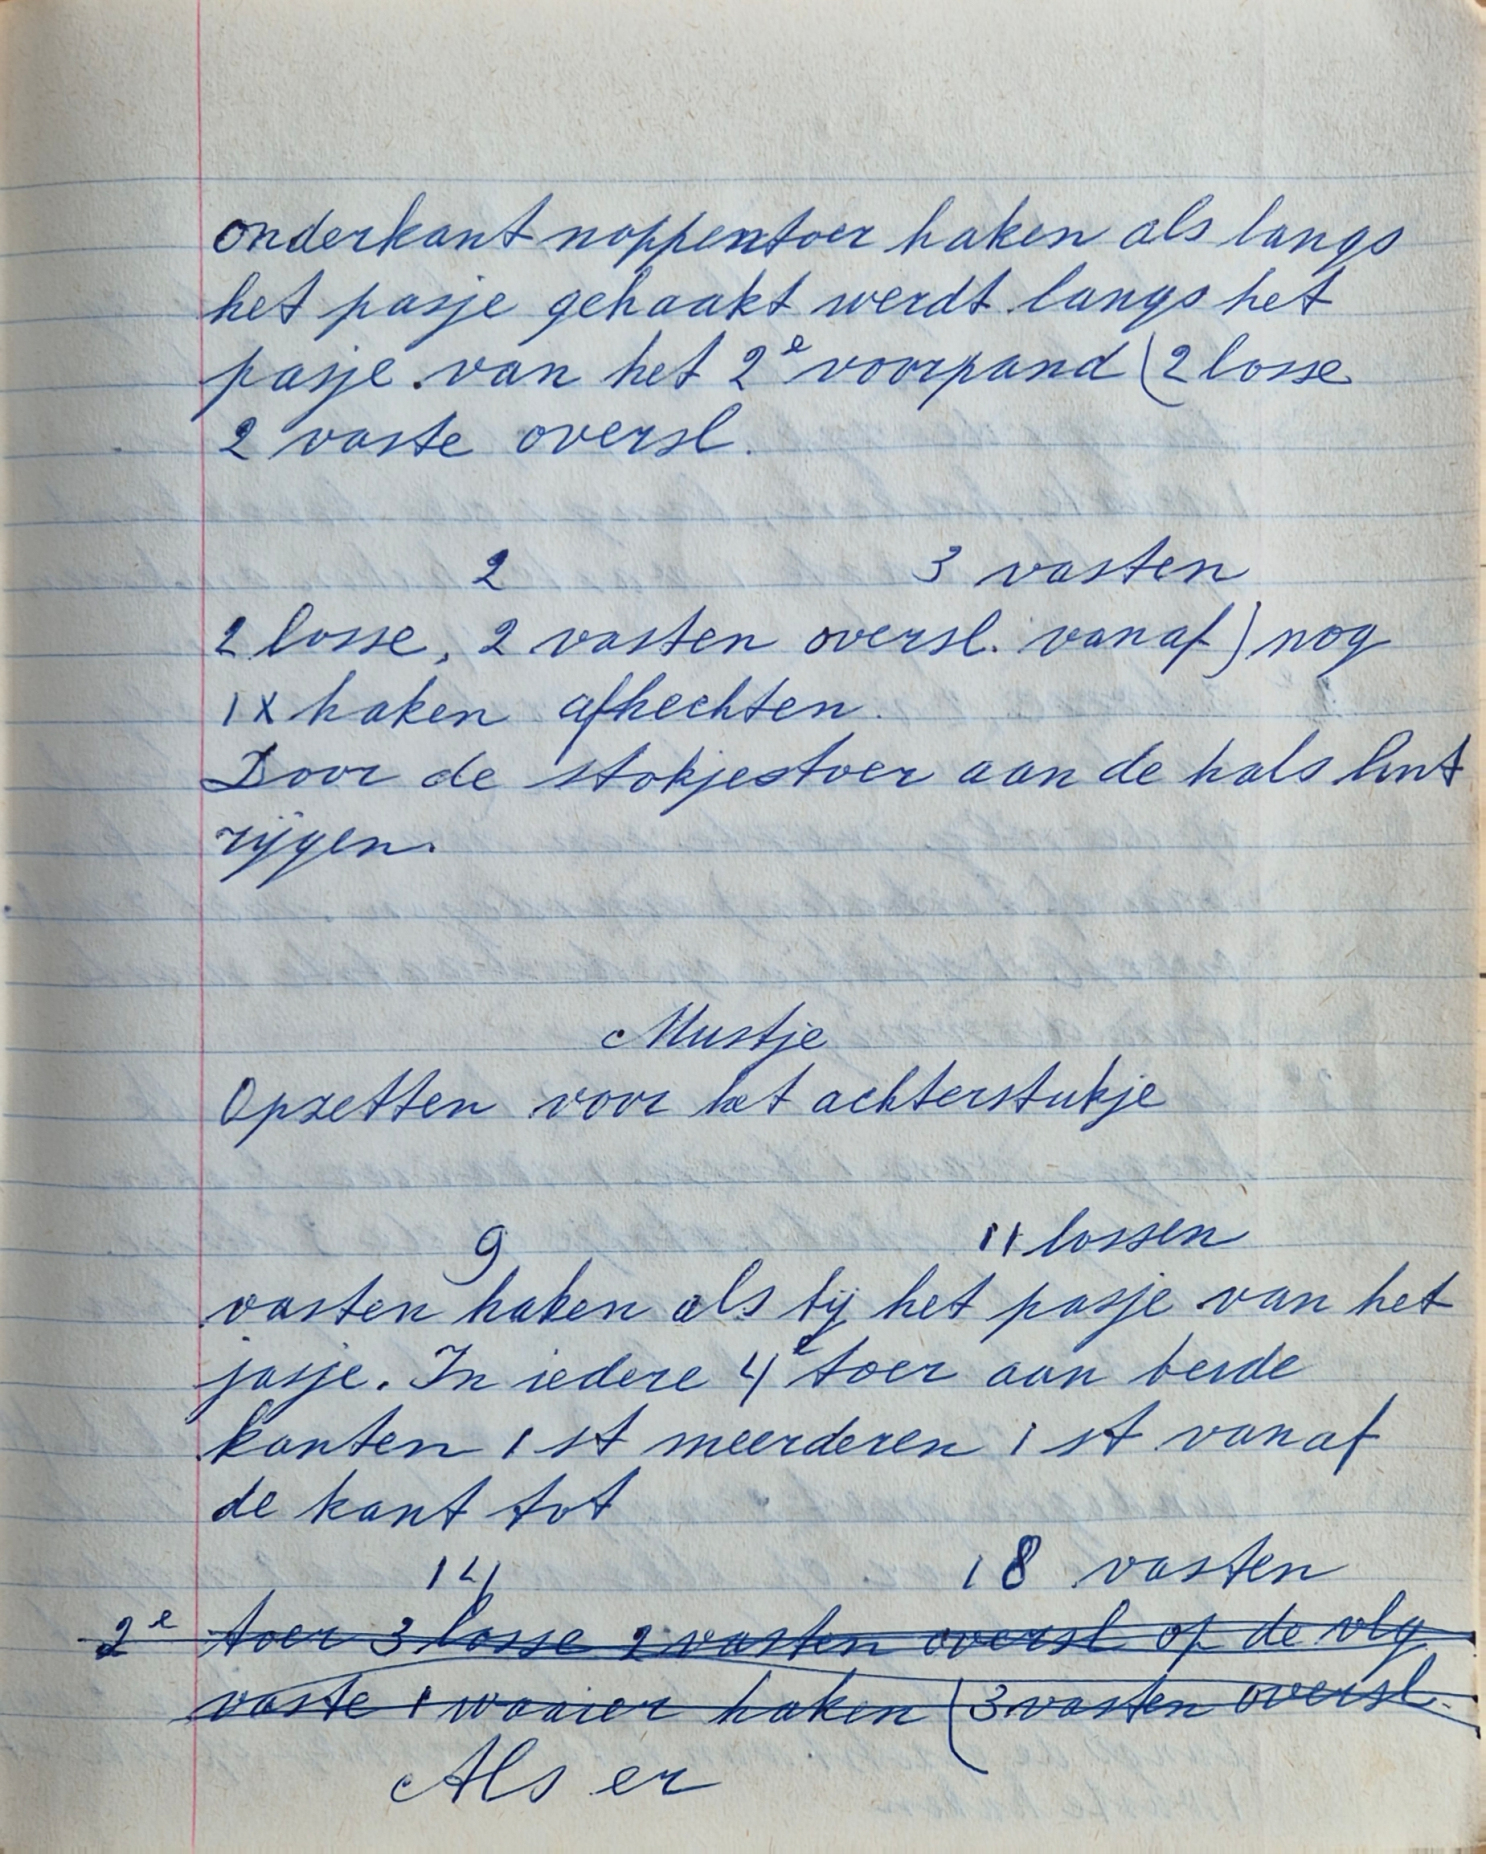 onderkant noppentoer haken als langs
het pasje gehaakt werdt langs het
pasje van het 2e voorpand (2 losse
2 vaste oversl.
2 3 vasten
2 losse, 2 vasten oversl. vanaf) nog
1x haken afhechten.
Door de stokjestoer aan de hals lint
rijgen.
Mustje
Opzetten voor het achterstukje
9 11 lossen
vasten haken als bij het pasje van het
jasje. In iedere 4e toer aan beide
kanten 1 st meerderen 1 st vanaf
de kant tot
14 18 vasten
2e toer 3 losse 2 vasten oversl op de vlg
vaste 1 waaier haken (3 vasten oversl.
Als er